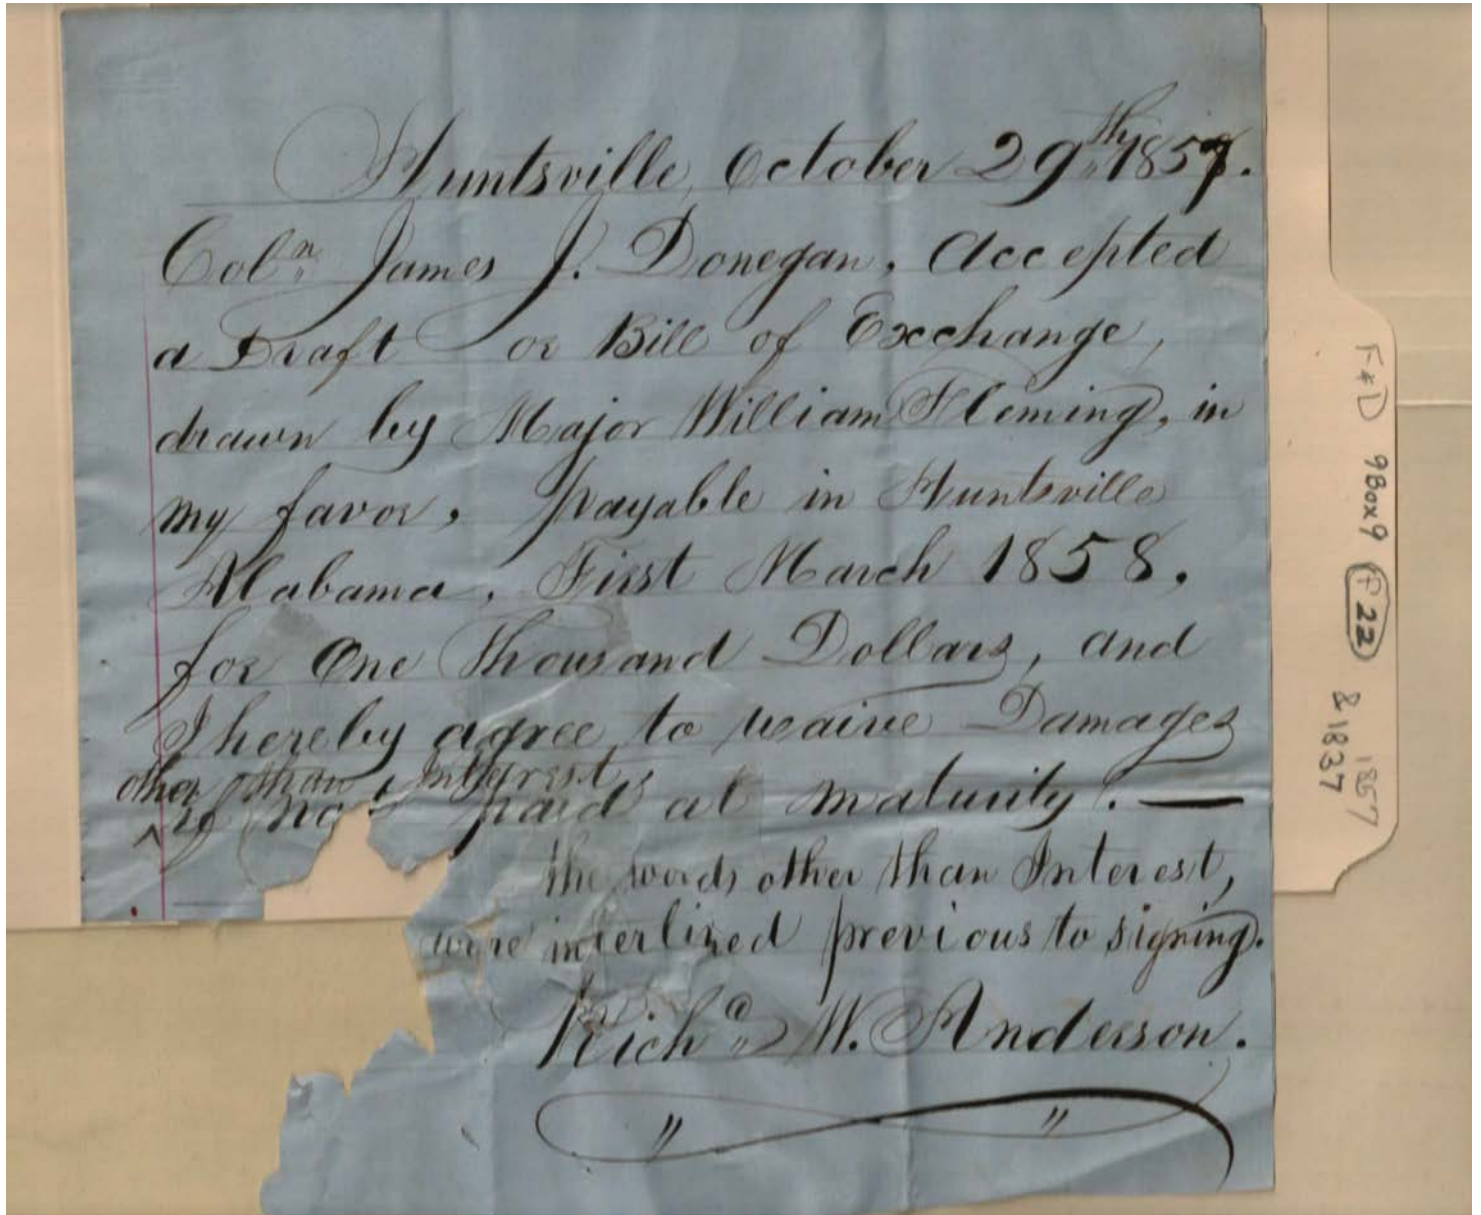 Huntsville, October 29th, 1857.
Coln. James J. Donegan, Accepted
a Draft or Bill of Exchange,
drawn by Major William Fleming, in
my favor, payable in Huntsville
Alabama, First March 1858,
for One Thousand Dollars, and
I hereby agree to waive Damages
other than Interest,
^ if not paid at maturity. —
the words other than Interest,
were interlined previous to signing.
Richd. W. Anderson.
" "
F&D 9Box9 F22 1857
&1837